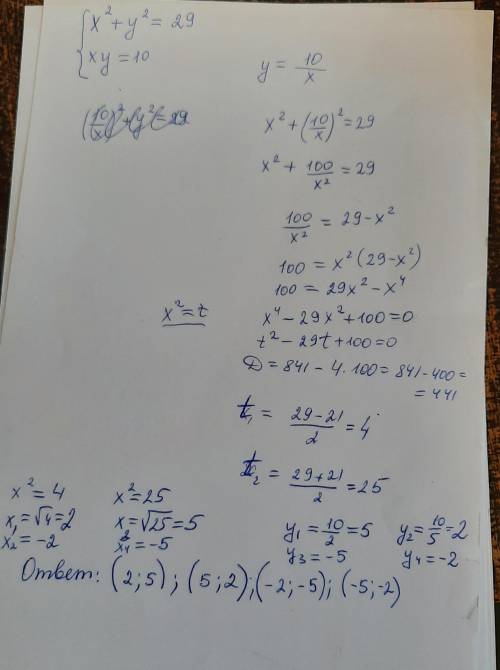 x² + y² = 29
xy = 10
y = 10/x
(10/x)² + y² = 29
x² + (10/x)² = 29
x² + 100/x² = 29
100/x² = 29 - x²
100 = x² (29 - x²)
100 = 29x² - x⁴
x² = t
x⁴ - 29x² + 100 = 0
t² - 29t + 100 = 0
D = 841 - 4 · 100 = 841 - 400 =
= 441
t₁ = (29 - 21)/2 = 4
t₂ = (29 + 21)/2 = 25
x² = 4
x₁ = √4 = 2
x₂ = -2
x² = 25
x = √25 = 5
x₄ = -5
y₁ = 10/2 = 5
y₂ = 10/5 = 2
y₃ = -5
y₄ = -2
Ответ: (2; 5); (5; 2); (-2; -5); (-5; -2)